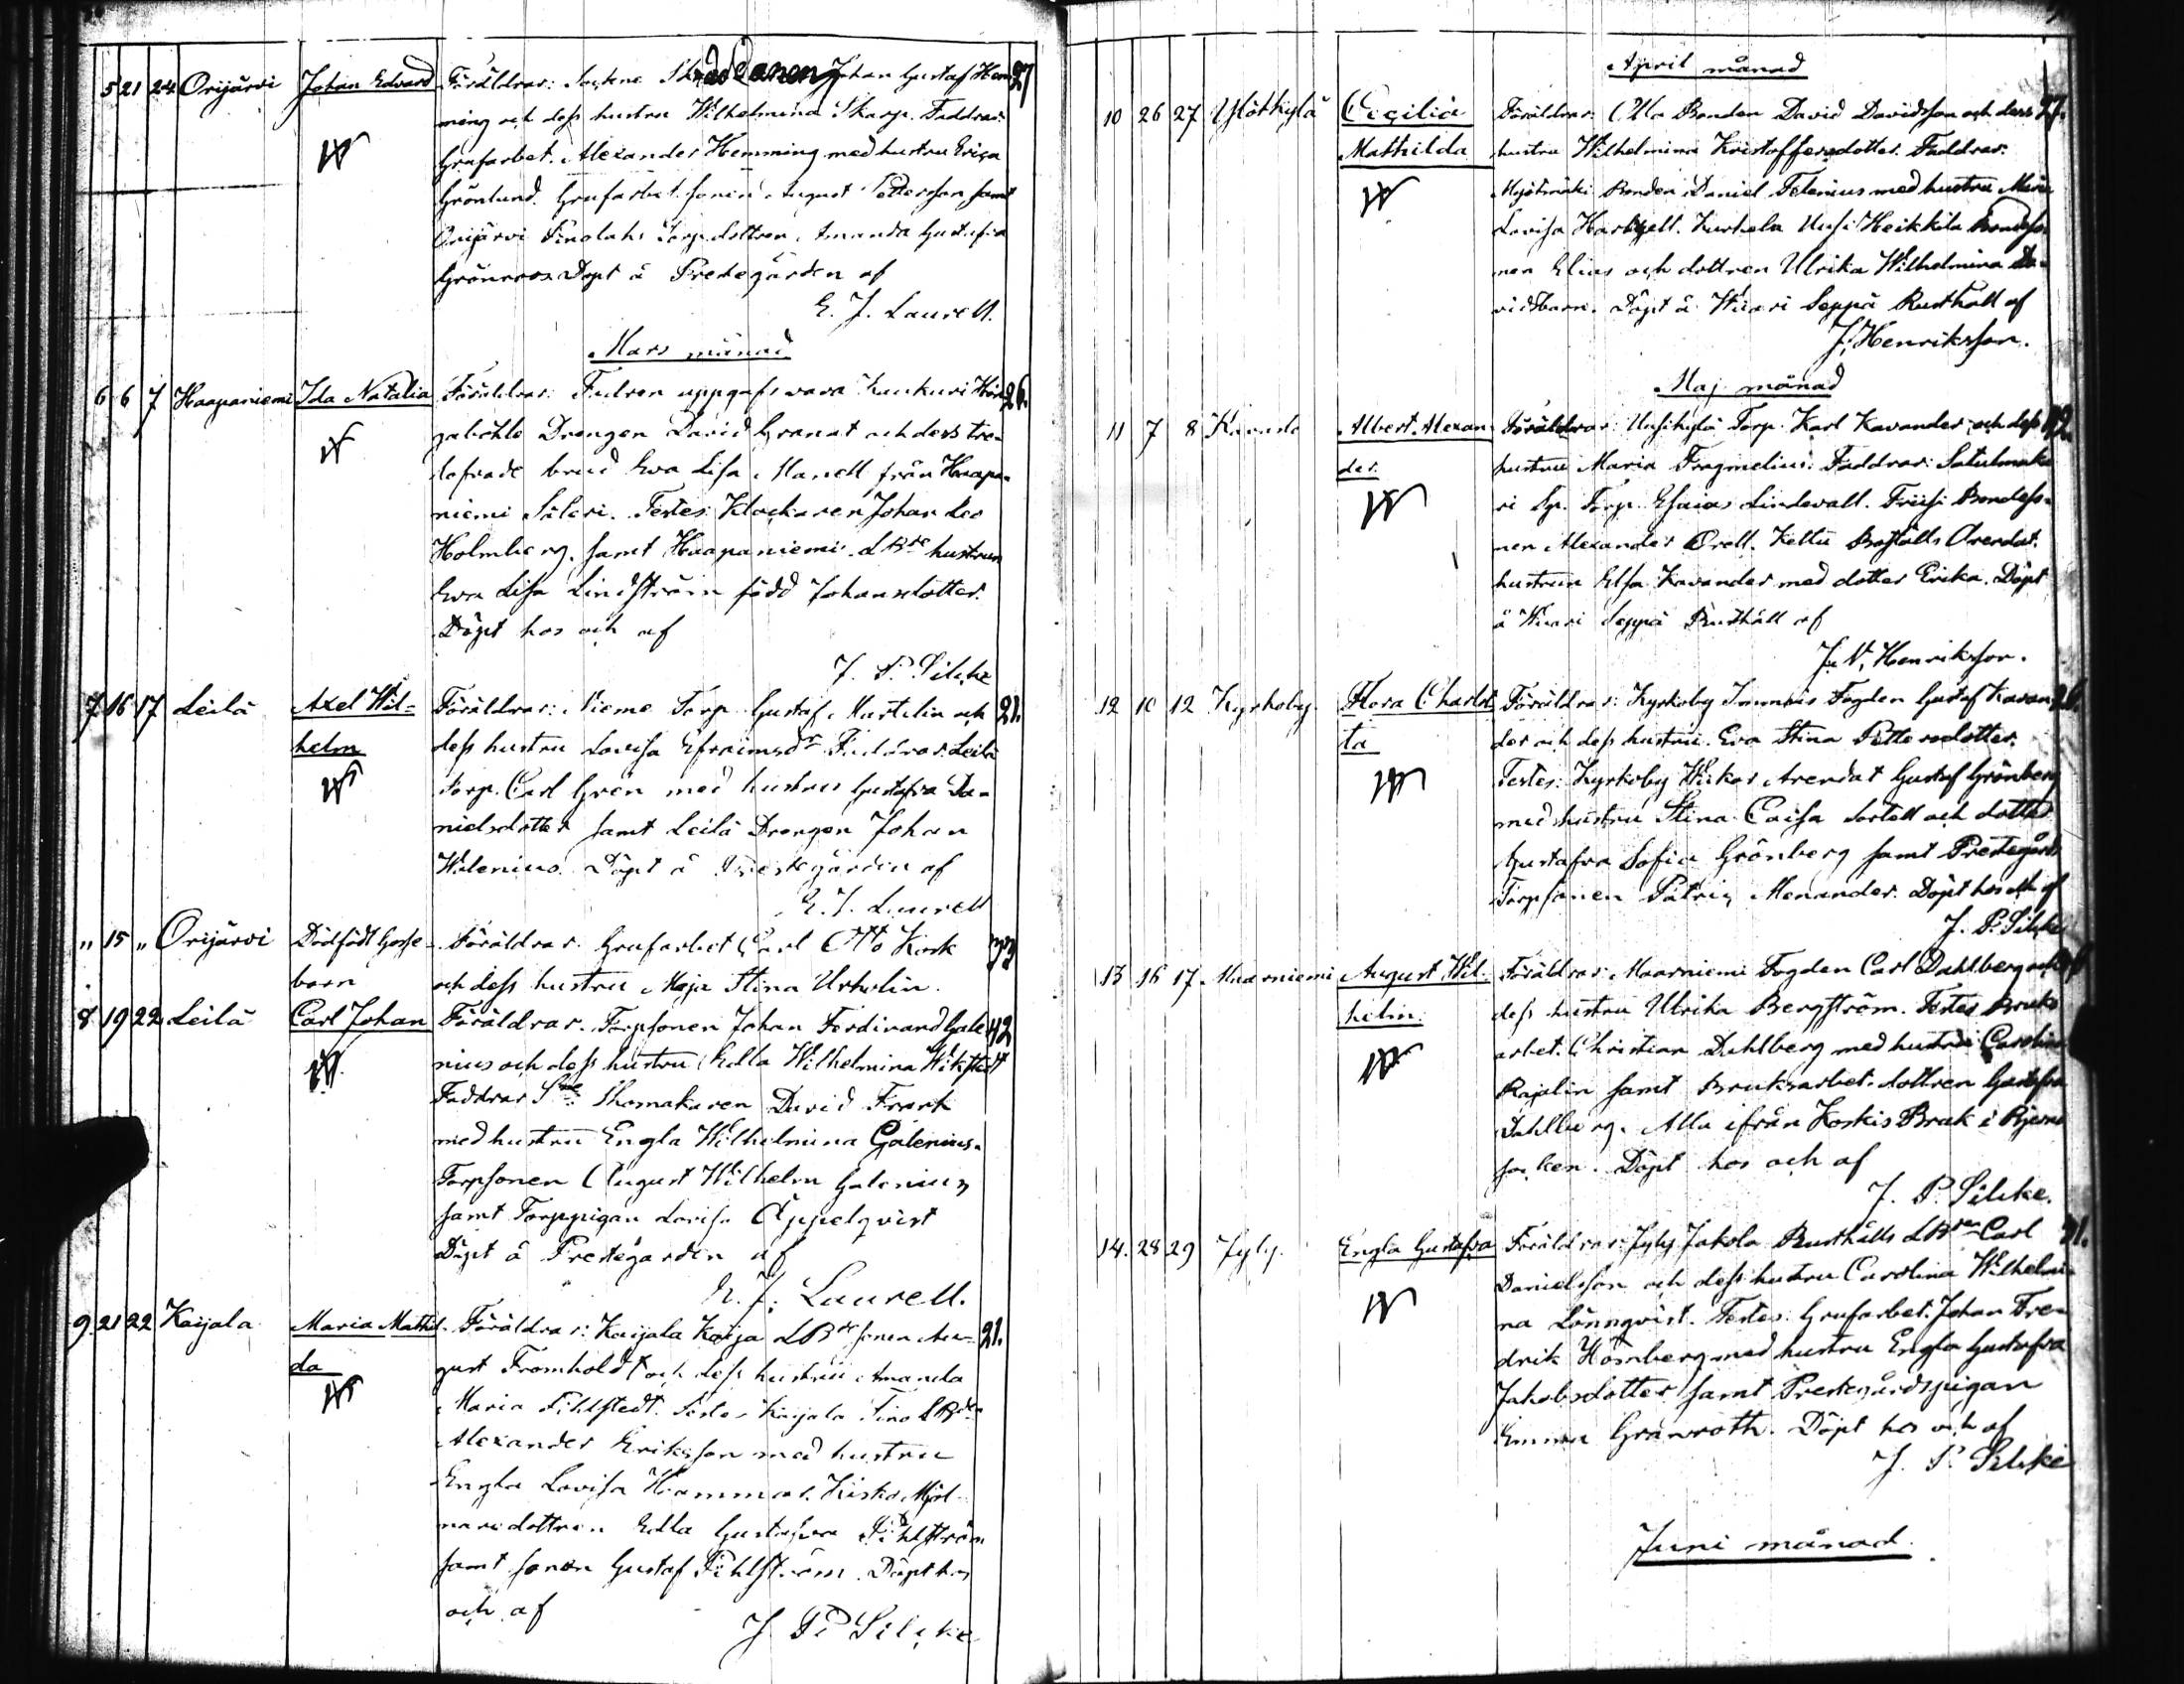 5 21 24 Orijärvi Johan Edvard Föräldrar: Sockne Skreddaren Johan Gustaf Hem 27
ming och dess hustru Wilhelmina Skarp. Faddrar:
Grufarbet. Alexander Hemming med hustru Erica
Grönlund. Grufarbet. sonen August Pettersson samt
Orijärvi Torp. dottren Amanda Gustafva
Grönroos Döpt å Predegården af
E. J. Laurell.
Mars månad
6 6 7 Haapaniemi Ida Natalia Föräldrar: Fadren uppgafs vara Kuukuri 26.
Drengen David Granat och dess tro-
lofvade brud Eva Lisa Manell från Haapa-
niemi Säteri. Testes: Klockaren Johan Leo
Holmberg, samt Haapaniemi LBde hustrun
Eva Lisa Lindström född Johansdotter.
Döpt hos och af
J. P. Silcke
7 16 17 Leilä Axel Wil- Föräldrar: Nieme Torp. Gustaf Martelin och 21.
helm dess hustru Lovisa Efraimsdr Faddrar: Leilä
Torp. Carl Grén med hustru Gustafva Da-
nielsdotter samt Leilä Drengen Johan
Walenius. Döpt å Prestegården af
E. J. Laurell
" 15 " Orijärvi Dödfödt Gosse- Föräldrar: Grufarbet. Carl Otto Kork 33
barn och dess hustru Maja Stina Urholin.
8 19 22 Leilä Carl Johan Föräldrar. Torpsonen Johan Ferdinand Gale 42
nius och dess hustru Edla Wilhelmina Wikstedt
Faddrar Sne Skomakaren David Frark
med hustru Engla Wilhelmina Galenius.
Torpsonen August Wilhelm Galenius
samt Torppigan Lovisa Äppelqvist
Döpt å Prestegården af
E. J. Laurell.
9 21 22 Kaijala Maria Mathil- Föräldrar: Kaijala Kaija LBde sonen Au- 21.
da gust Fromholdt och dess hustru Amanda
Maria Fihlstedt. Testes Kaijala Tino LBden
Alexander Eriksson med hustru
Engla Lovisa Hammar. Kisko Mjöl-
naredottren Edla Gustafva Pihlström
samt sonen Gustaf Pihlström. Döpt hos
och af
J P Silcke
April månad
10 26 27 Ylötkylä Cecilia Föräldrar: Olla Bonden David Davidsson och dess 27.
Mathilda hustru Wilhelmina Kristoffersdotter. Faddrar:
Myötmäki Bonden Daniel Telenius med hustru Maria
Lovisa Kurkela Uusi Heikkilä Bondeso
nen Elias och dottren Ulrika Wilhelmina Da-
vidsbarn. Döpt å Wiari Seppä Rusthåll af
J. Henriksson.
Maj månad
11 7 8 Albert Alexan Föräldrar: Uusikylä Torp. Karl Kavander och dess 42.
der. hustru Maria Fragmelius. Faddrar: Satulmaka
ri Sp. Torp. Esaias Lindevall. Bondeso-
nen Alexander Orell. Kettu Boställs Arendat.
hustrun Elsa Kavander med dotter Erika. Döpt
å Wiari Seppä Rusthåll af
J. N. Henriksson.
12 10 12 Kyrkoby. Flora Charlot Föräldrar: Kyrkoby Fogden Gustaf Kavan 26.
ta der och dess hustru Eva Stina Pettersdotter.
Testes: Kyrkoby Arendat Gustaf Grönberg
med hustru Stina Caisa och dotter
Gustafva Sofia Grönberg samt Prestegårds
Torpsonen Patrig Menander. Döpt hos och af
J. P. Silcke
13 16 17 Maarniemi August Wil- Föräldrar: Maarniemi Fogden Carl Dahlberg och
helm. dess hustru Ulrika Bergström. Testes Bruks
arbet. Christian Dahlberg med hustru Carolina
Rajalin samt Bruksarbet. dottren Gustafva
Dahlberg. Alla ifrån Koskis Bruk i Bjerno
socken. Döpt hos och af
J. P. Silcke.
14. 28 29 Jyly. Engla Gustafva Föräldrar: Jyly Jakola Rusthålls LBden Carl 31.
Danielsson och dess hustru Carolina Wilhelmi-
na Lönnqvist. Testes: Grufarbet. Johan Fre-
drik Hömberg med hustru Engla Gustafva
Jakobsdotter samt Prestegårdspigan
Emma Granroth. Döpt hos och af
J. P. Silcke
Juni månad.